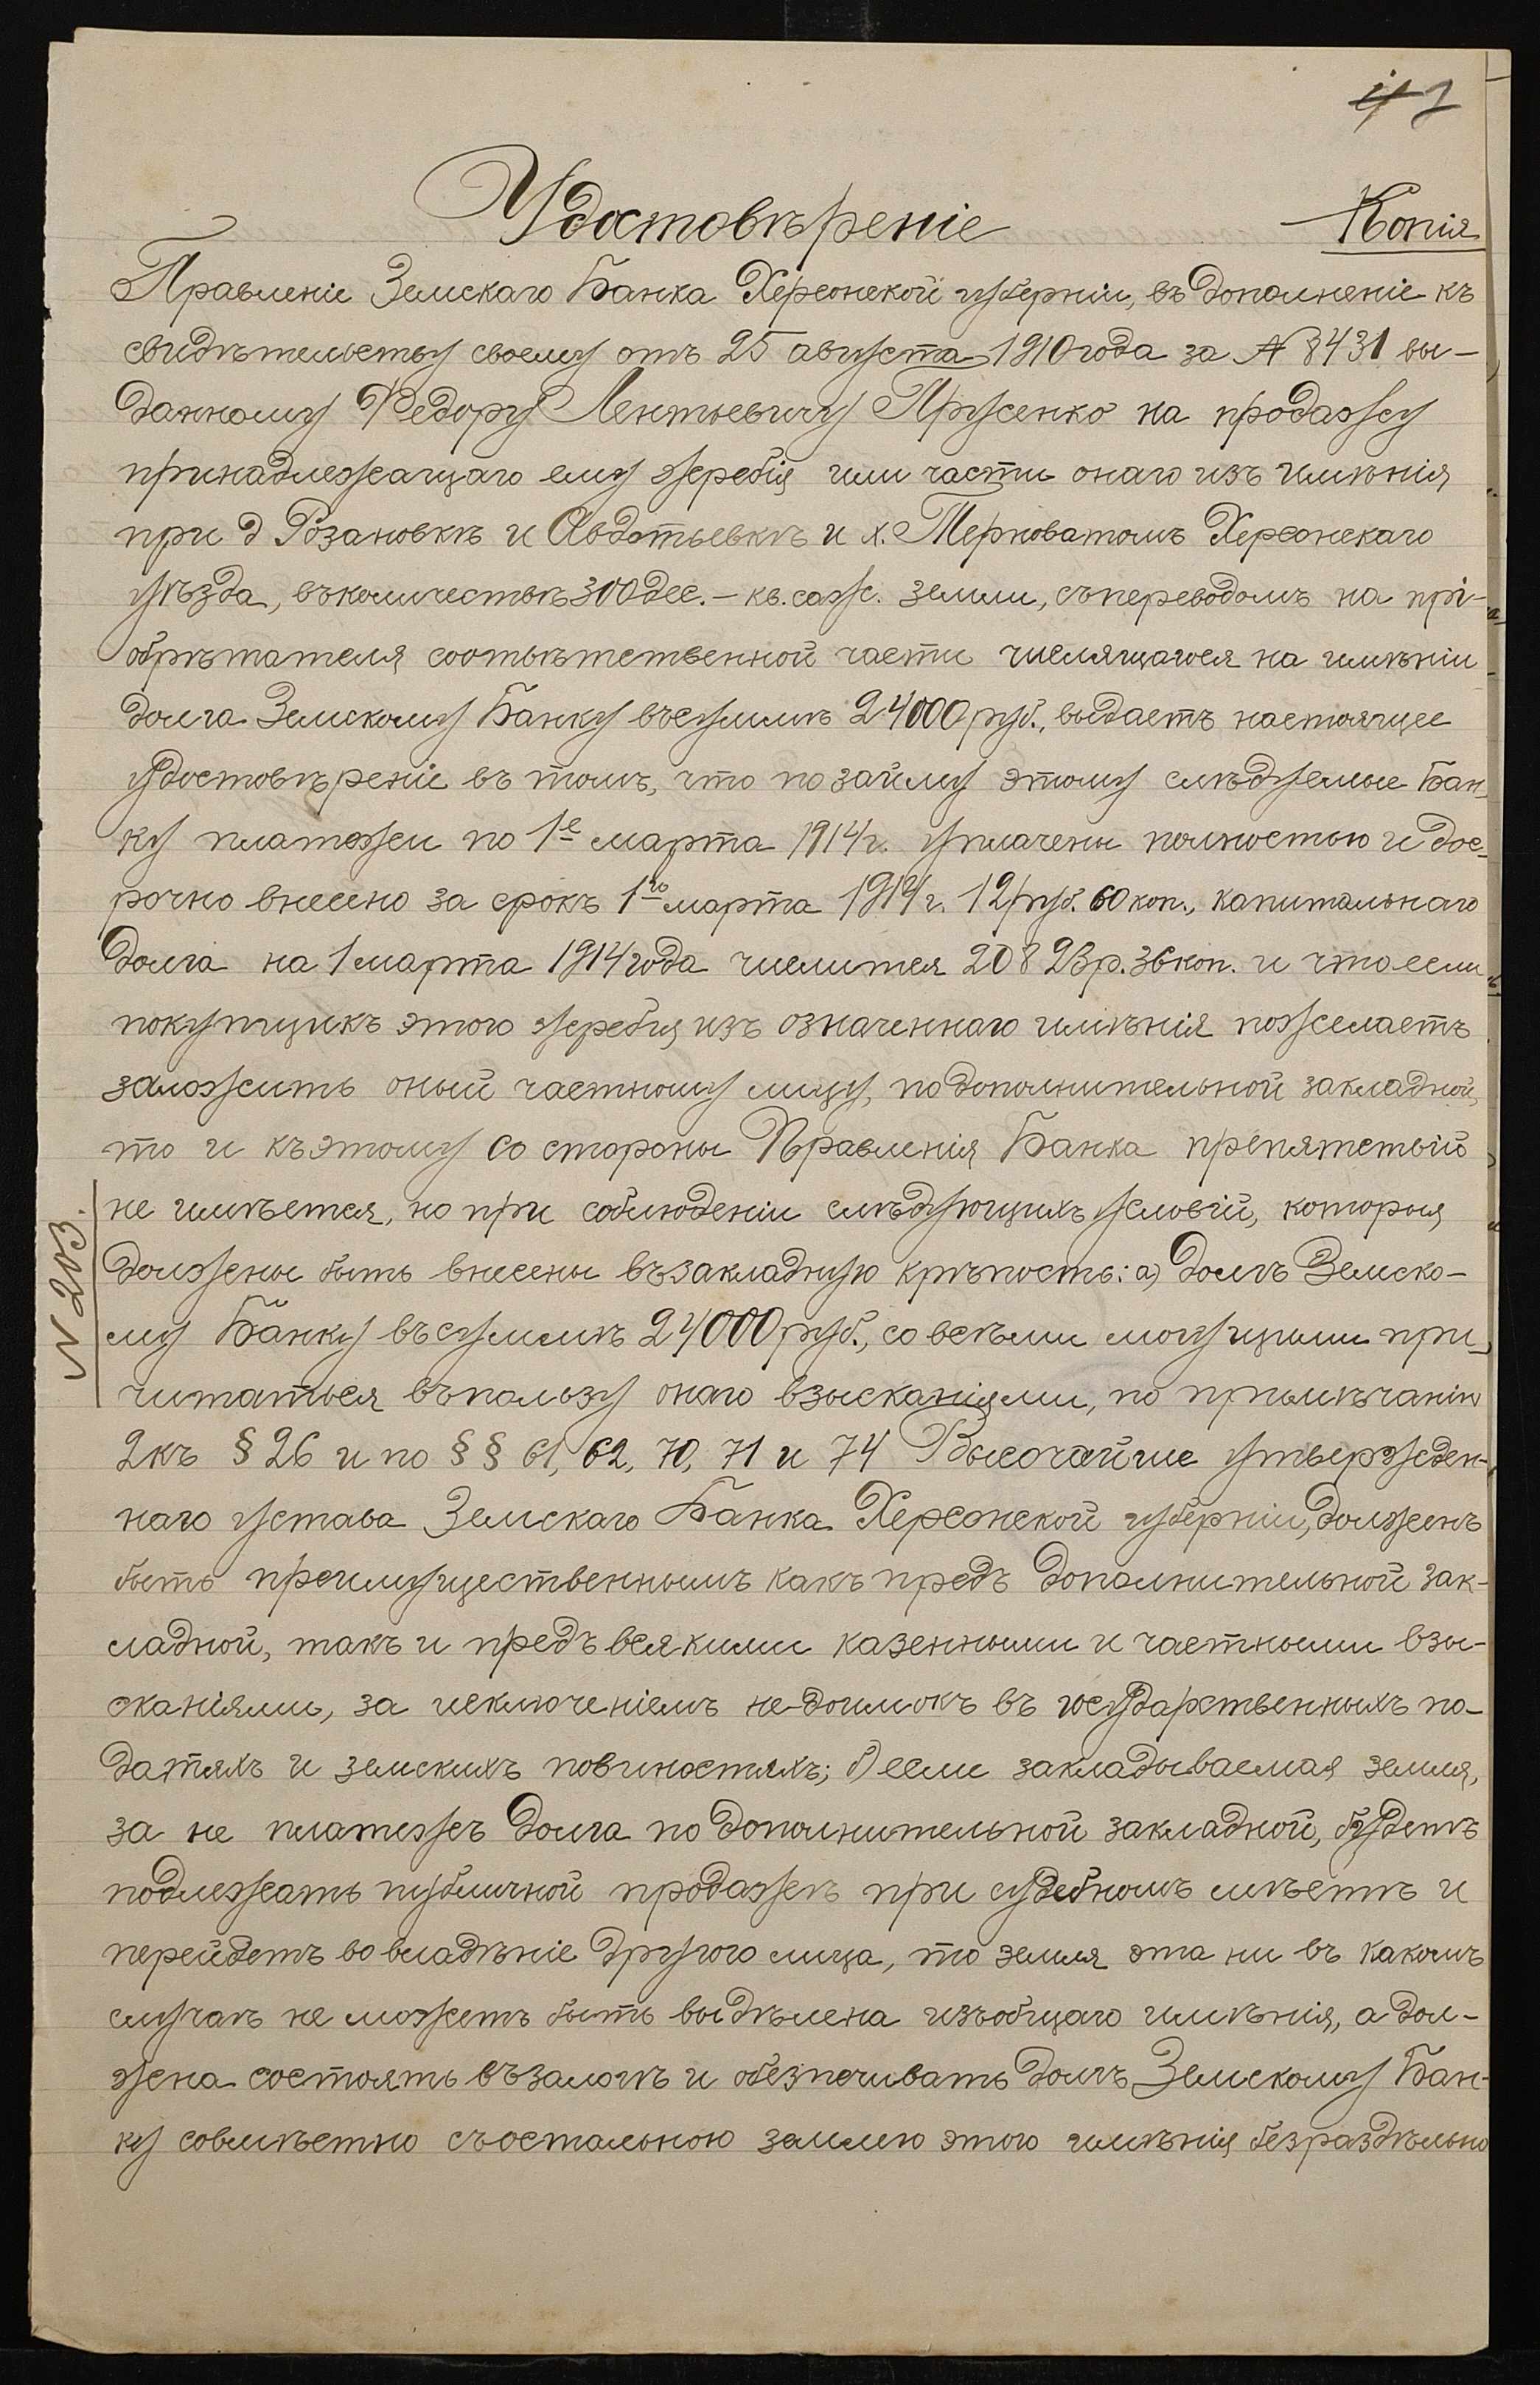 Удостовѣреніе
Копія
Правленіе Земскаго Банка Херсонской губерніи, въ дополненіе къ
свидѣтельству своему отъ 25 августа 1910 года за № 8431 вы-
данному Федору Леонтьевичу Прусенко на продажу
принадлежащаго ему жеребія или части онаго изъ имѣнія
при д Розановкѣ и Авдотьевкѣ и х. Терноватомъ Херсонскаго
уѣзда, въ количествѣ 300 дес. – кв. саж. земли, съ переводомъ на прі-
обрѣтателя соотвѣтственной части числящагося на имѣніи
долга Земскому Банку въ суммѣ 24000 руб., выдаетъ настоящее
удостовѣреніе въ томъ, что по займу этому слѣдуемые Бан-
ку платежи по 1е марта 1914 г. уплачены полностью и дос-
рочно внесено за срокъ 1го марта 1914 г. 12 руб. 60 коп., капитальнаго
долга на 1 марта 1914 года числится 20823 р. 36 коп. и что если
покупщикъ этого жеребія изъ означеннаго имѣнія пожелаетъ
заложить оный частному лицу, по дополнительной закладной,
то и къ этому со стороны Правленія Банка препятствій
не имѣется, но при соблюденіи слѣдующихъ условій, которыя
должены быть внесены въ закладную крѣпость: а) долгъ Земско-
му Банку въ суммѣ 24000 руб., со всѣми могущими при-
читаться въ пользу онаго взысканіями, по примѣчанію
2 къ § 26 и по § § 61, 62, 70, 71 и 74 Высочайше утвержден-
наго устава Земскаго Банка Херсонской губерніи, долженъ
быть преимущественнымъ какъ предъ дополнительной зак-
ладной, такъ и предъ всякими казенными и частными взы-
сканіями, за исключеніемъ недоимокъ въ государственныхъ по-
датяхъ и земскихъ повиностяхъ; б) если закладываемая земля,
за не платежъ долга по дополнительной закладной, будетъ
подлежать публичной продажѣ при судебномъ мѣстѣ и
перейдетъ во владѣніе другого лица, то земля эта ни въ какомъ
случаѣ не можетъ быть выдѣлена изъ общаго имѣнія, а дол-
жена состоять въ залогѣ и обезпечивать долгъ Земскому Бан-
ку совмѣстно съ остальною землею этого имѣнія безраздѣльно
№ 203.